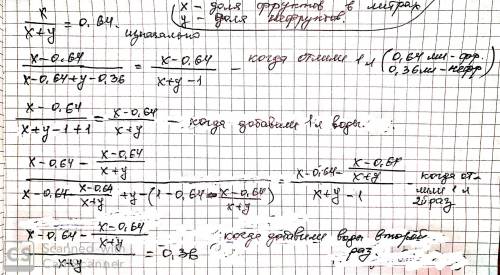 x/(x+y) = 0,64. изначально
(x - доля фруктов в литрах
y - доля нефруктов.)
(x-0.64)/(x-0.64+y-0.36) = (x-0,64)/(x+y-1) - когда отлили 1 л (0,64 ли - фр. 0,36 ли - нефр)
(x-0,64)/(x+y-1+1) = (x-0,64)/(x+y) - когда добавили 1 л воды.
(x-0,64 - (x-0,64)/(x+y))/(x-0,64 - (x-0,64)/(x+y) + y - (1-0,64 - (x-0,64)/(x+y))) = (x-0,64 - (x-0,64)/(x+y))/(x+y-1) когда отлили 1 л 2й раз
(x-0,64 - (x-0,64)/(x+y))/(x+y) = 0,36 когда добавили воды второй раз.
CS Scanned with CamScanner